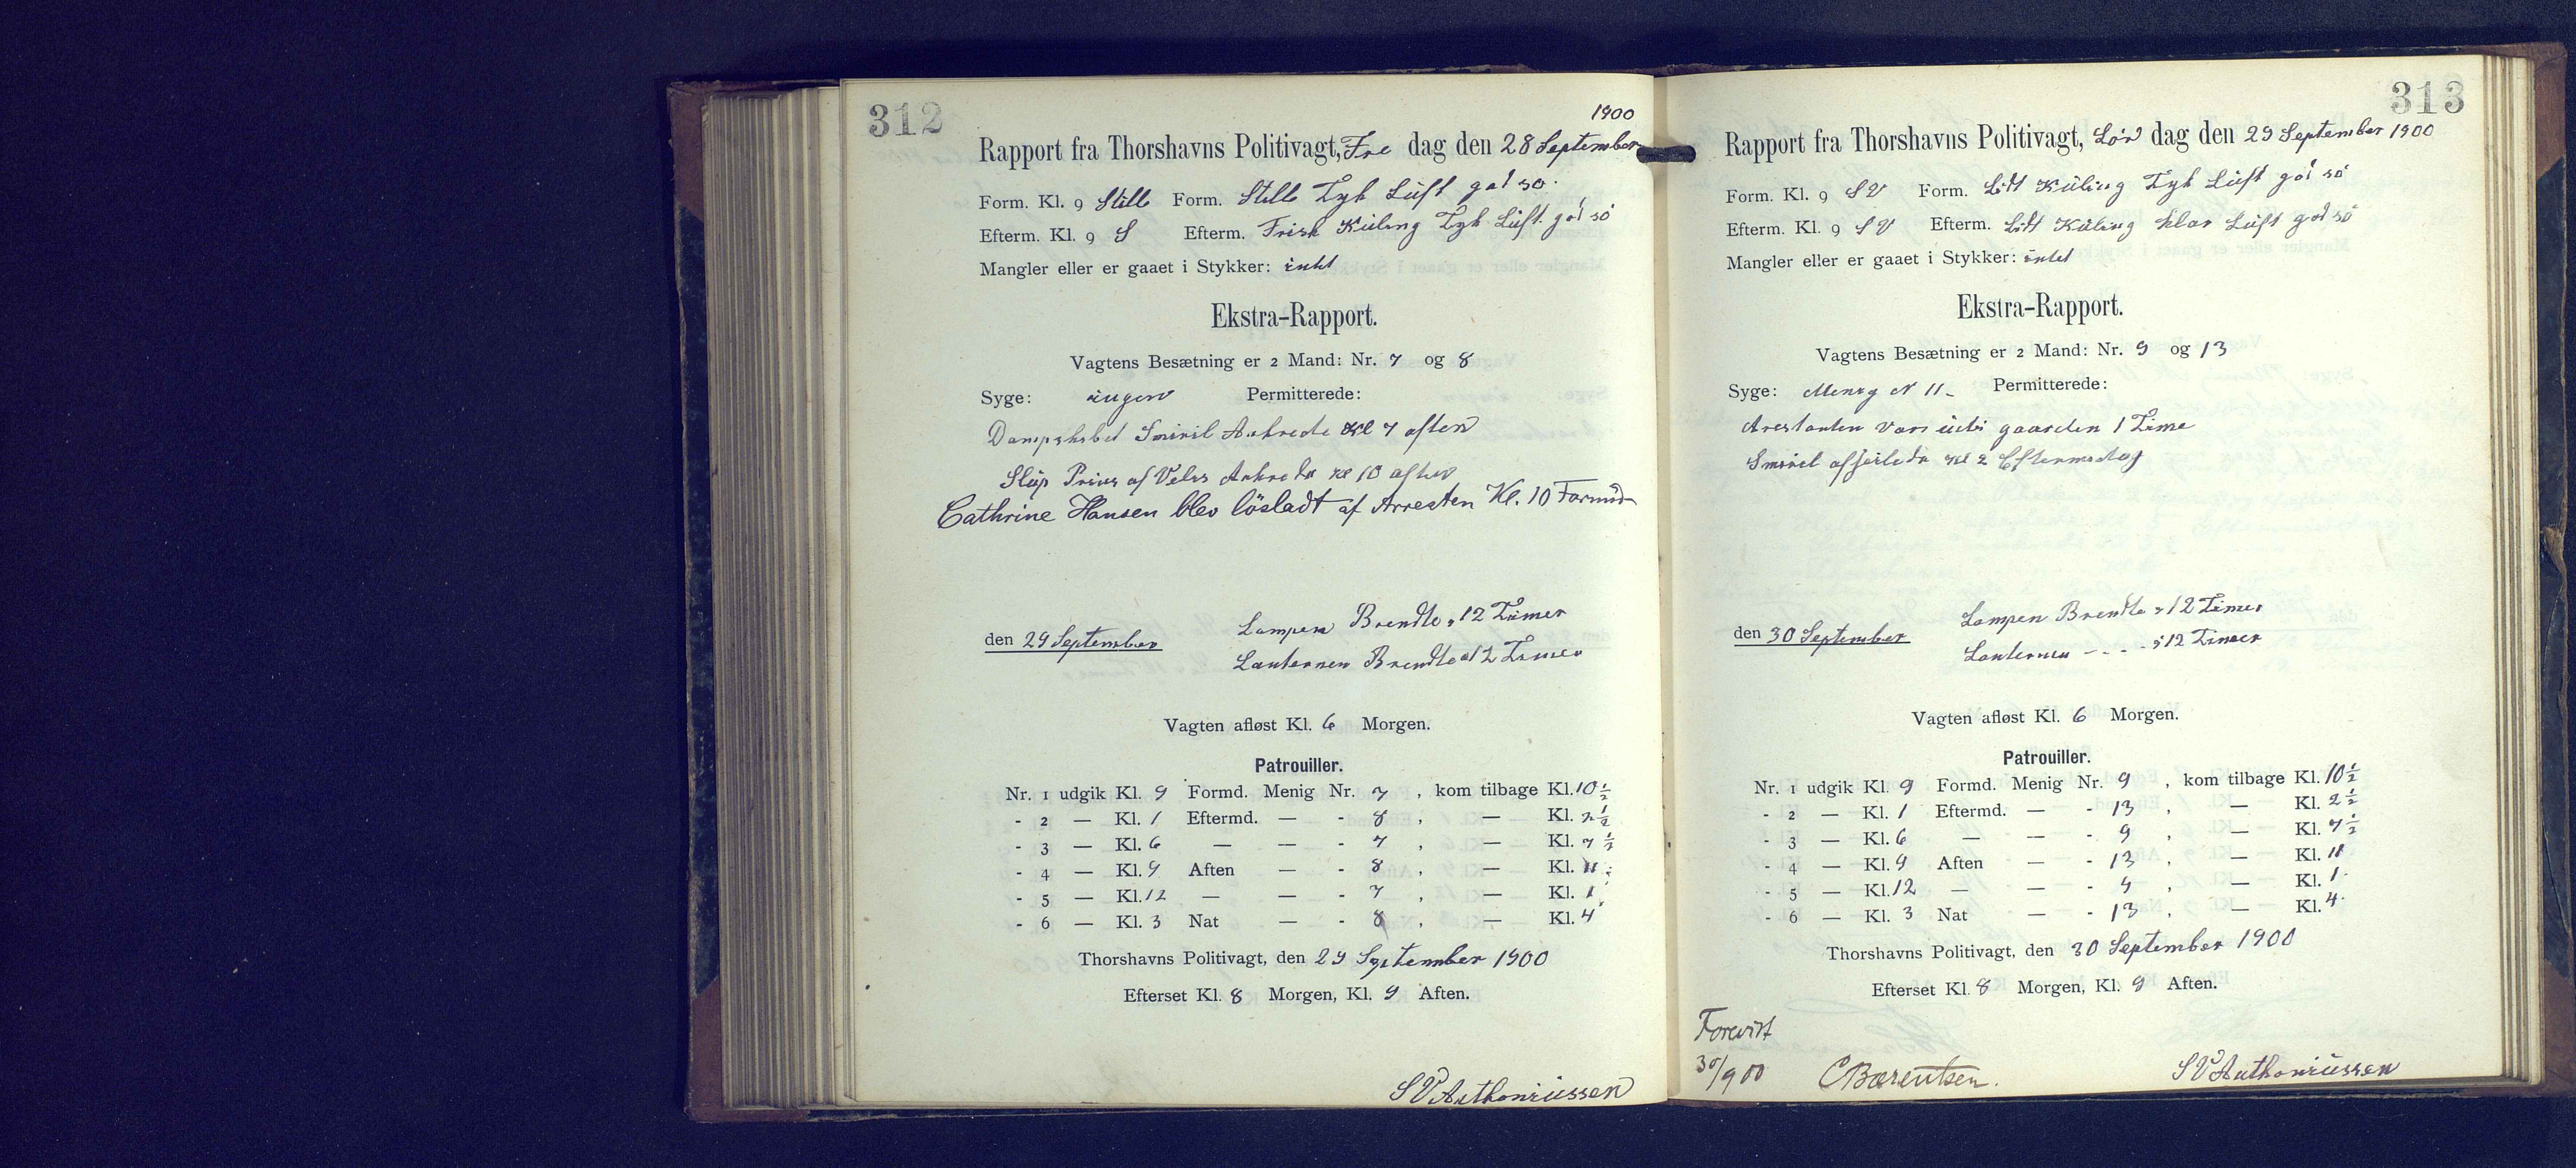 312
1900
Rapport fra Thorshavns Politivagt, Fre dag den 28 September
Form. Kl. 9 Stille Form. Stille Tyk Luft god sø
Efterm. Kl. 9 S Efterm. Frisk Kuling Tyk Luft god sø
Mangler eller er gaaet i Stykker: intet
Ekstra-Rapport.
Vagtens Besætning er 2 Mand: Nr. 7 og 8
Syge: ingen Permitterede:
Dampskibet Smiril Ankrede Kl 7 aften
Slup Prins af Vels Ankrede Kl 10 aften
Cathrine Hansen blev løsladt af Arresten Kl. 10 Formid
den 29 September
Lampen Brendte 12 Timer
Lanternen Brendte 12 Timer
Vagten afløst Kl. 6 Morgen.
Patrouiller.
Nr. 1 udgik Kl. 9 Formd. Menig Nr. 7 , kom tilbage Kl. 10 ½
- 2 — Kl. 1 Eftermd. — - 8 , — Kl. 2 ½
- 3 — Kl. 6 — — - 7 , — Kl. 7 ½
- 4 — Kl. 9 Aften — - 8 , — Kl. 11
- 5 — Kl. 12 — — - 7 , — Kl. 1
- 6 — Kl. 3 Nat — - 8 , — Kl. 4
Thorshavns Politivagt, den 29 September 1900
Efterset Kl. 8 Morgen, Kl. 9 Aften.
SV Anthoniussen
313
Rapport fra Thorshavns Politivagt, Lør dag den 29 September 1900
Form. Kl. 9 SV Form. Lidt Kuling Tyk Luft god sø
Efterm. Kl. 9 SV Efterm. Lidt Kuling klar Luft god sø
Mangler eller er gaaet i Stykker: intet
Ekstra-Rapport.
Vagtens Besætning er 2 Mand: Nr. 9 og 13
Syge: Menig N 11 - Permitterede:
Arestanten var udi gaarden 1 Time
Smiril afseilede Kl 2 Eftermedag
den 30 September
Lampen Brendte 12 Timer
Lanternen - - - - 12 Timer
Vagten afløst Kl. 6 Morgen.
Patrouiller.
Nr. 1 udgik Kl. 9 Formd. Menig Nr. 9 , kom tilbage Kl. 10 ½
- 2 — Kl. 1 Eftermd. — - 13 , — Kl. 2 ½
- 3 — Kl. 6 — — - 9 , — Kl. 7 ½
- 4 — Kl. 9 Aften — - 13 , — Kl. 11
- 5 — Kl. 12 — — - 9 , — Kl. 1
- 6 — Kl. 3 Nat — - 13 , — Kl. 4
Thorshavns Politivagt, den 30 September 1900
Efterset Kl. 8 Morgen, Kl. 9 Aften.
Forevist
30/9 00 CBærentsen.
SV Anthoniussen